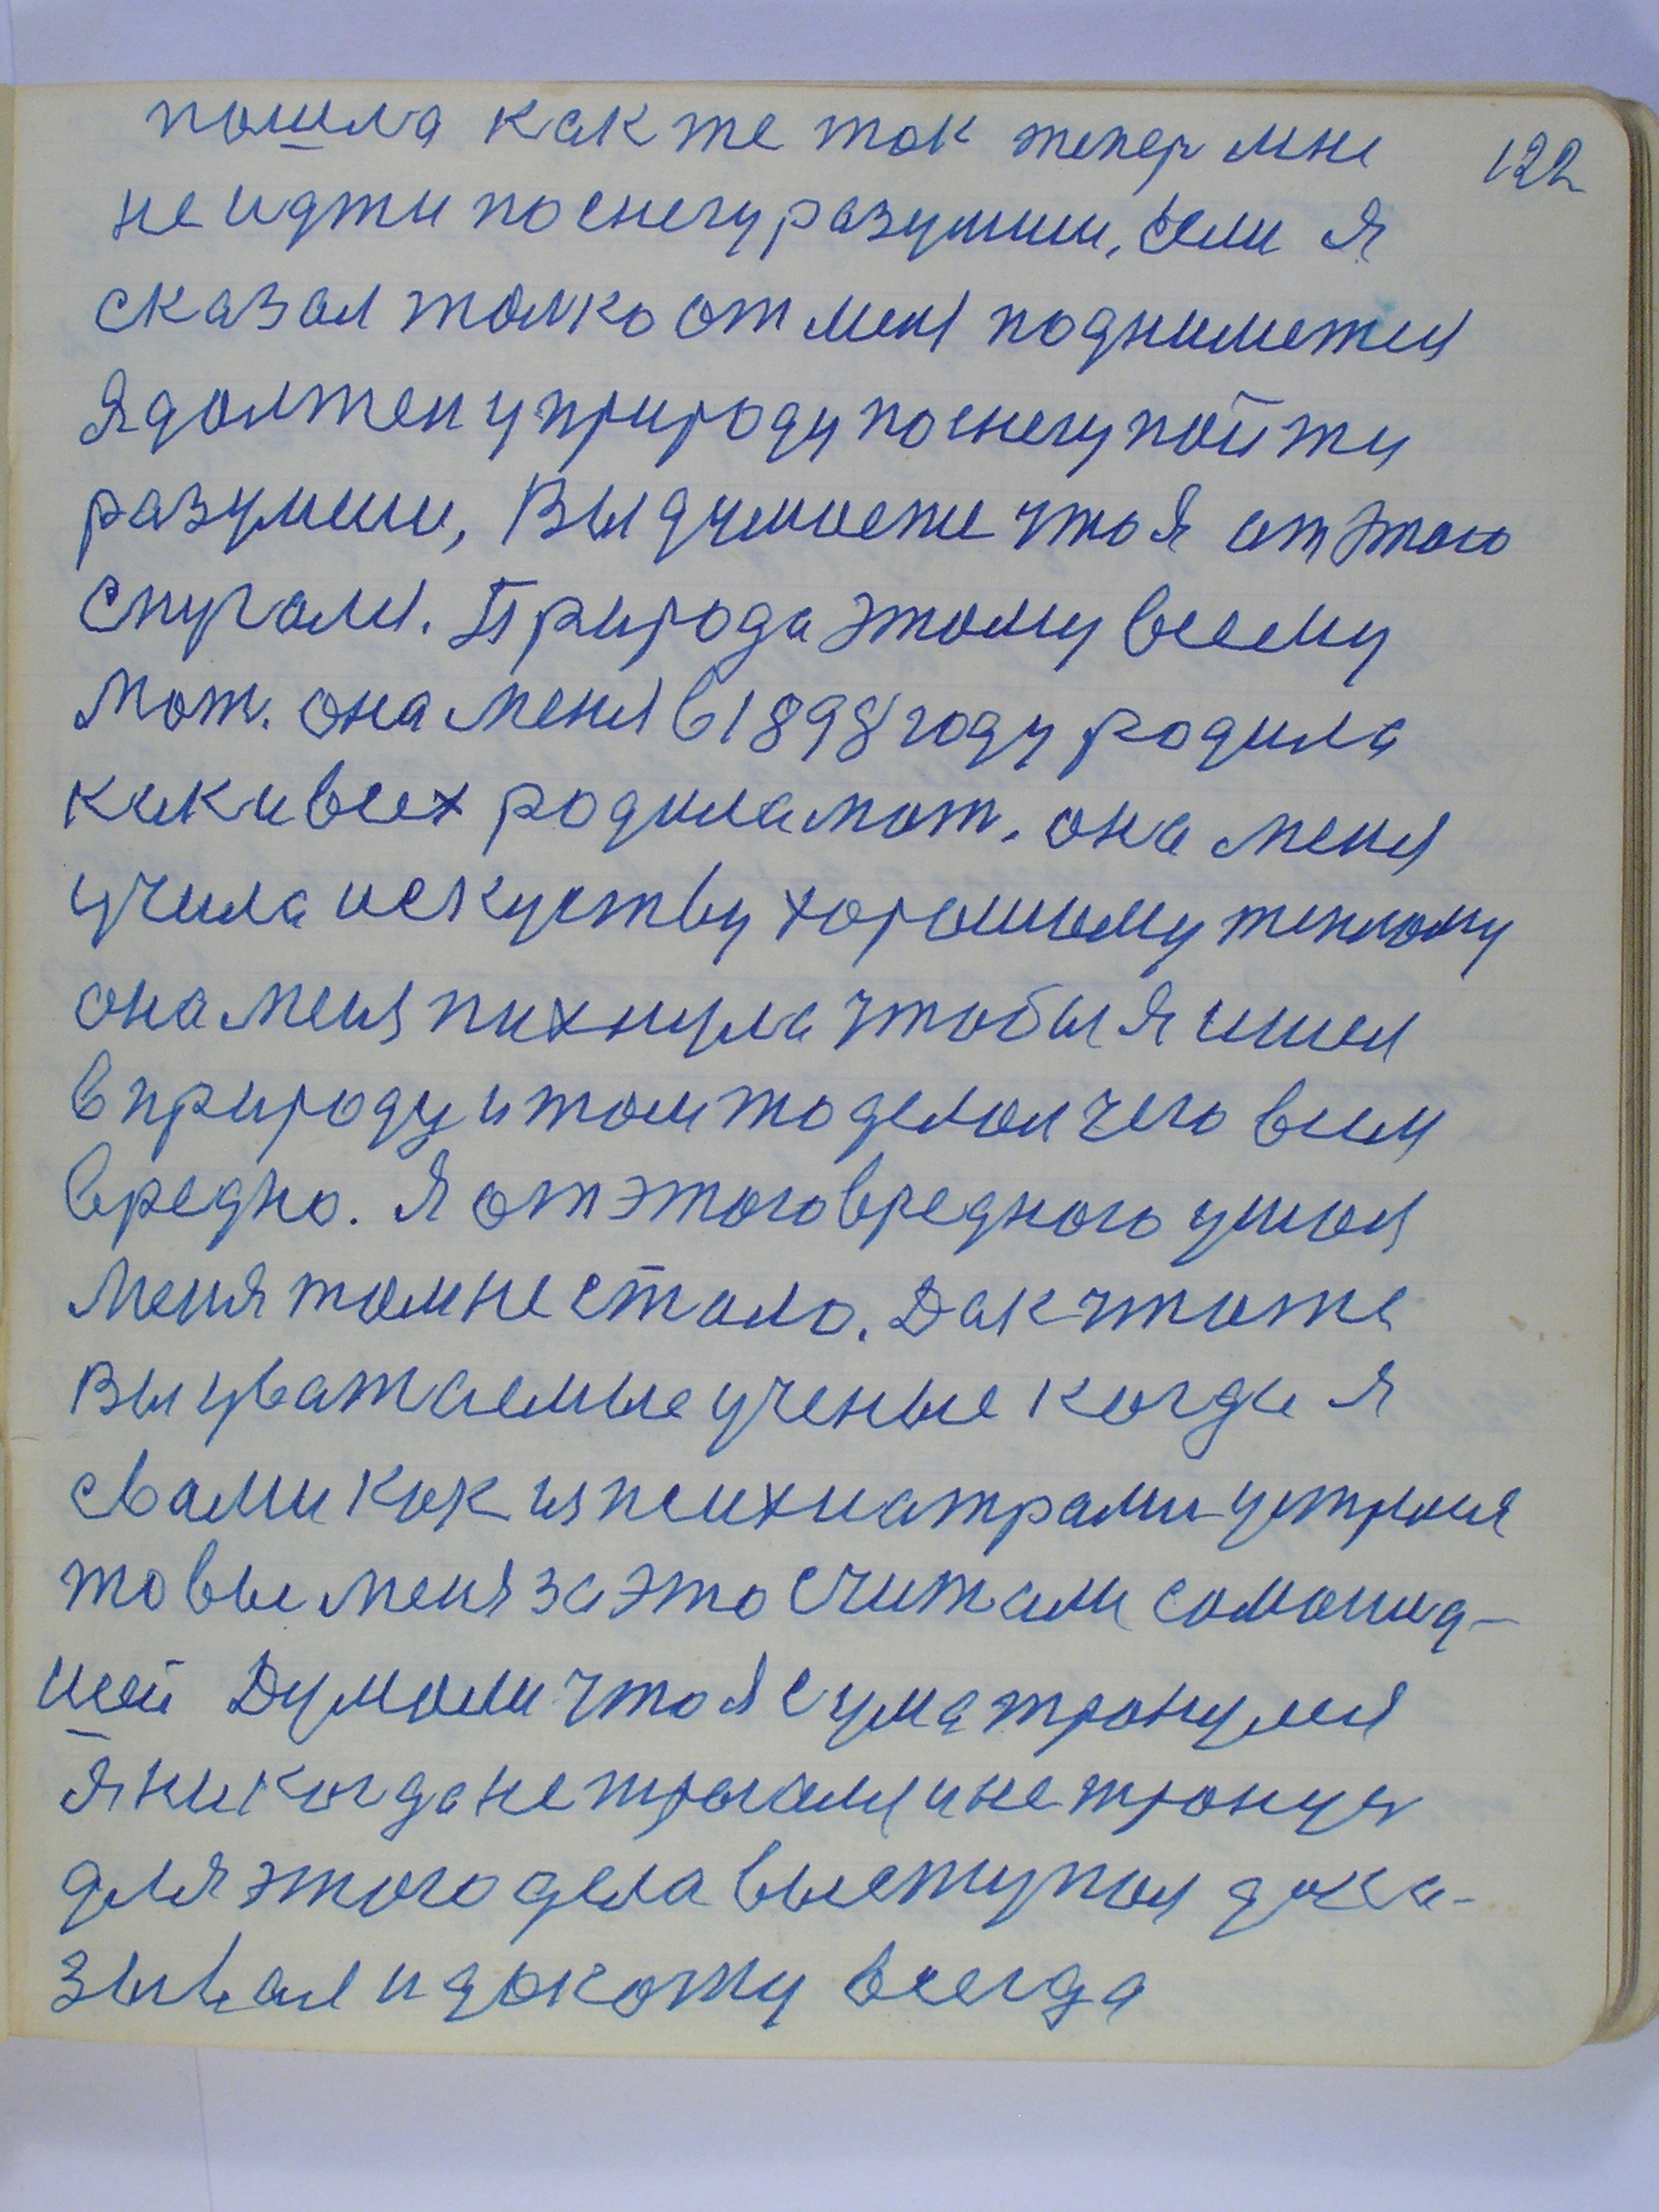 пошла как же так тепер мне 122
не идти по снегу разумши, если я
сказал толко от меня подниметься
Я должен у природу по снегу пойти
разумши, Вы думаете что я от этого
спугался. Природа этому всему
мат. она меня в 1898 году родила
как и всех родила мат. она меня
учила искуству хорошему теплому
она меня пихнула чтобы я ишел
в природу и там то делал чего всем
вредно. Я от этого вредного ушол
меня там не стало. Дак что же
вы уважаемые ученые когда я
с вами как и психиатрами устрился
то вы меня за это считали
Думали что я с ума тронулся
Я никогда не трогался и не тронусь
для этого дела выступал дока-
зывал и докажу всегда